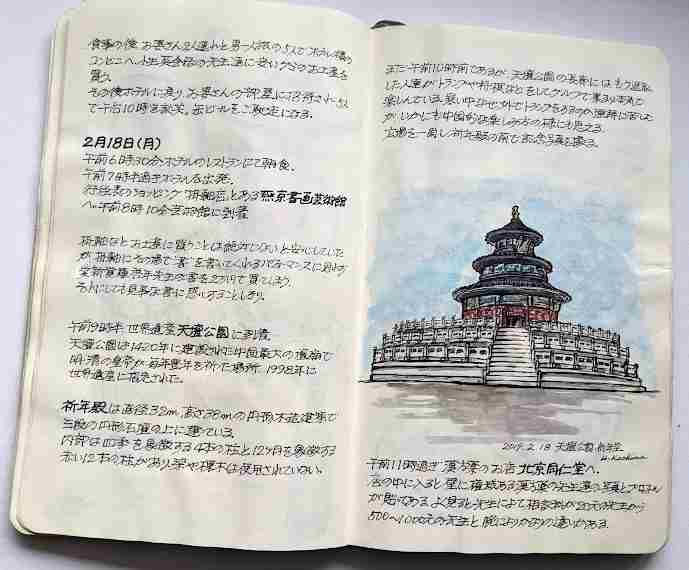 食事の後 お客さん2人連れと男一人旅の5人でホテル横の
コンビニへ
買う。
その後ホテルに戻り お客さんの部屋に招待され 5人
で午后10時まで 缶ビールをご馳走になる。
2月18日(月)
午前6時30分ホテルのレストランにて朝食。
午前7時半過ぎホテルを出発。
行程表のショッピング「掛軸店」とある燕京書画芸術館
へ。午前8時10分芸術館に到着
掛軸などお土産に買うことは絶対にないと安心していた
が 掛軸にその場で"書"を書いてくれるパフォーマンスに
先生の書を2万円で買てしまう。
それにしても見事な書に感心することしきり。
午前9時半 世界遺産 天壇公園に到着
天壇公園は1420年に建設された中国最大の
明・清の皇帝が毎年豊年を祈た場所。1998年に
世界遺産に指定された。
祈年殿は直径32m 高さ38mの円形木造建築で
三段の円形石壇の上に建ている。
内部は四季を象徴する4本の柱と12ヶ月を象徴する
赤い12本の柱があり 梁や は使用されていない。
まだ午前10時前であるが、天壇公園の長廊にはもう退職
した人達がトランプや将棋などをしてグループで集まり本気で
楽しんでいる。寒い中なぜ外でトランプをするのか理解に苦しむ
が いかにも中国的な楽しみ方の様にも見える。
広場を一周し祈年殿の前で記念写真を撮る。
2019. 2. 18 天壇公園 祈年堂
午前11時過ぎ 漢方薬のお店 北京同仁堂へ。
店の中に入ると壁に権威ある漢方薬の先生達の写真とプロフィル
が貼てある。よく見ると先生によって相談料が20元の先生から
500〜1000元の先生と腕によりかなりの違いがある。